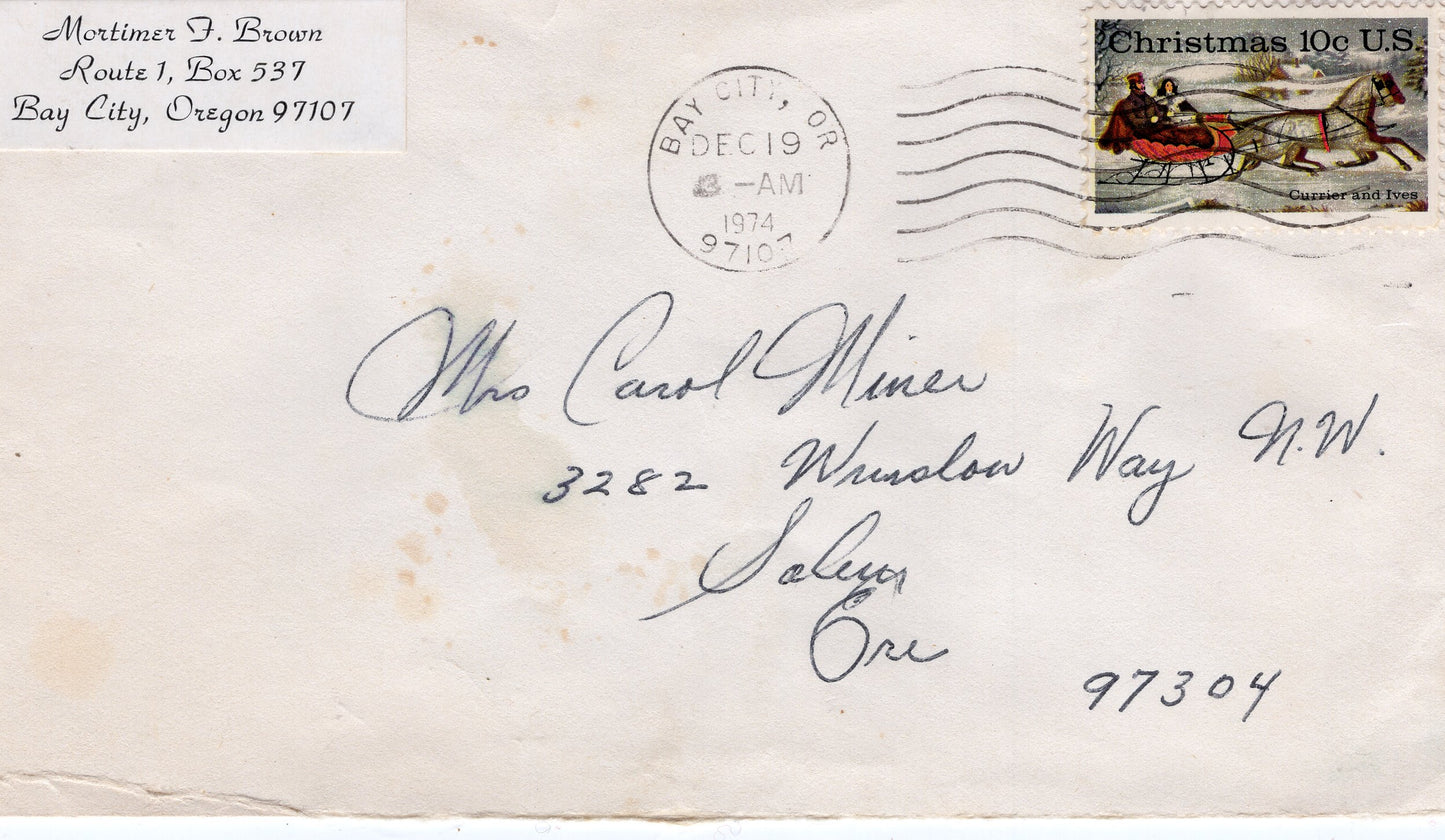 Mortimer F. Brown
Route 1, Box 537
Bay City, Oregon 97107
BAY CITY, OR
DEC 19
-AM
1974
97107
Christmas 10c U.S.
Currier and Ives
Mrs Carol Miner
3282 Winslow Way N.W.
Salem
Ore
97304